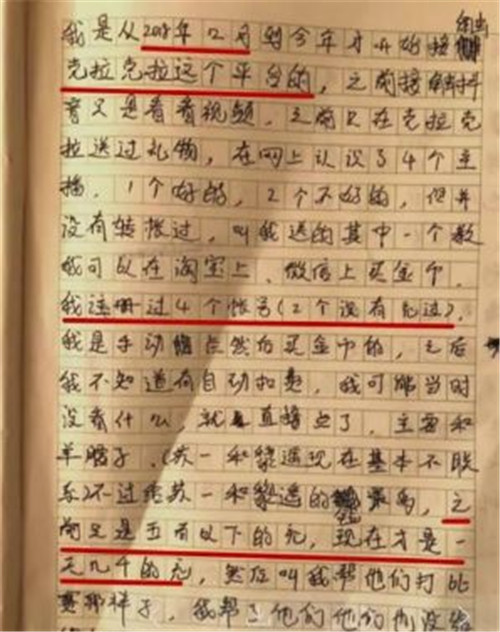 我是从2018年12月到今年才开始接触
克拉克拉这个平台的，之前接触抖
音只是看看视频，之前只在克拉克
拉送过礼物，在网上认识了4个主
播，1个好的，2个不好的，但并
没有转账过，叫我送的其中一个教
我可以在淘宝上、微信上买金币，
我注册过4个帐号(2个没有充过)，
我是手动点然后买金币的，之后
我不知道有自动扣费，我可能当时
没看什么，就直接点了，主要和
羊腊子、(苏一和黎遥现在基本不联
系)不过给苏一和黎遥的最多，之
前只是五百以下的充，现在才是一
天几千的充，然后叫我帮他们打pk
赛那样子，我帮了他们他们也没给